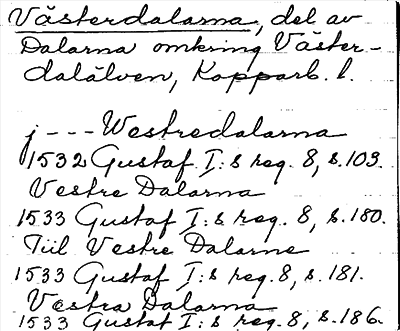 Västerdalarna, del av
Dalarna omkring Väster-
dalälven, Kopparb. l.
j --- Westredalarna
1532 Gustaf I:s reg. 8, s. 103.
Vestre Dalarna
1533 Gustaf I:s reg. 8, s. 180.
Tiil Vestre Dalarne
1533 Gustaf I:s reg. 8, s. 181.
Vestra Dalarna
1533 Gustaf I:s reg. 8, s. 186.